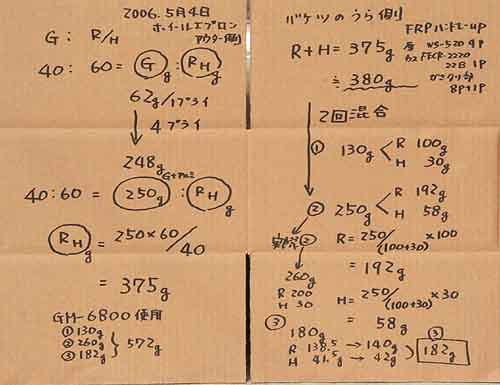 2006.5月4日
ホイールエプロン
アウター側
G : R/H
40 : 60 = G g : RH g
62g/1プライ
4プライ
248g
G+アルミ
40:60 = 250g : RH g
RH g = 250×60/40
= 375g
GM-6800使用
① 130g
② 260g
③ 182g
572g
バケツのうら側
FRPハンドレーup
R+H = 375g
≒ 380g
22日 1P
8P+1P
2回混合
① 130g < R 100g
H 30g
② 250g < R 192g
H 58g
実際②
260g
R 200
H 30
R = 250/(100+30) ×100
= 192g
H = 250/(100+30) ×30
= 58g
③ 180g
R 138.5g → 140g
H 41.5g → 42g
③ 182g